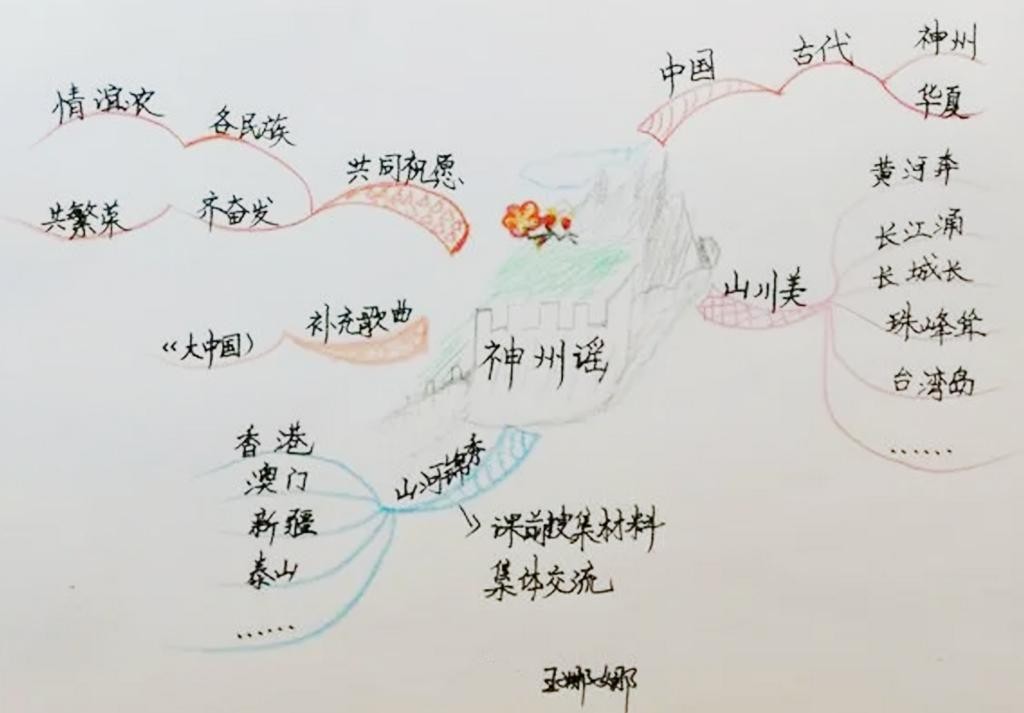 神州谣
中国
古代
神州
华夏
山川美
黄河奔
长江涌
长城长
珠峰耸
台湾岛
……
山河锦秀
香港
澳门
新疆
泰山
……
课前搜集材料
集体交流
补充歌曲
《大中国》
共同祝愿
各民族
情谊浓
齐奋发
共繁荣
王娜娜